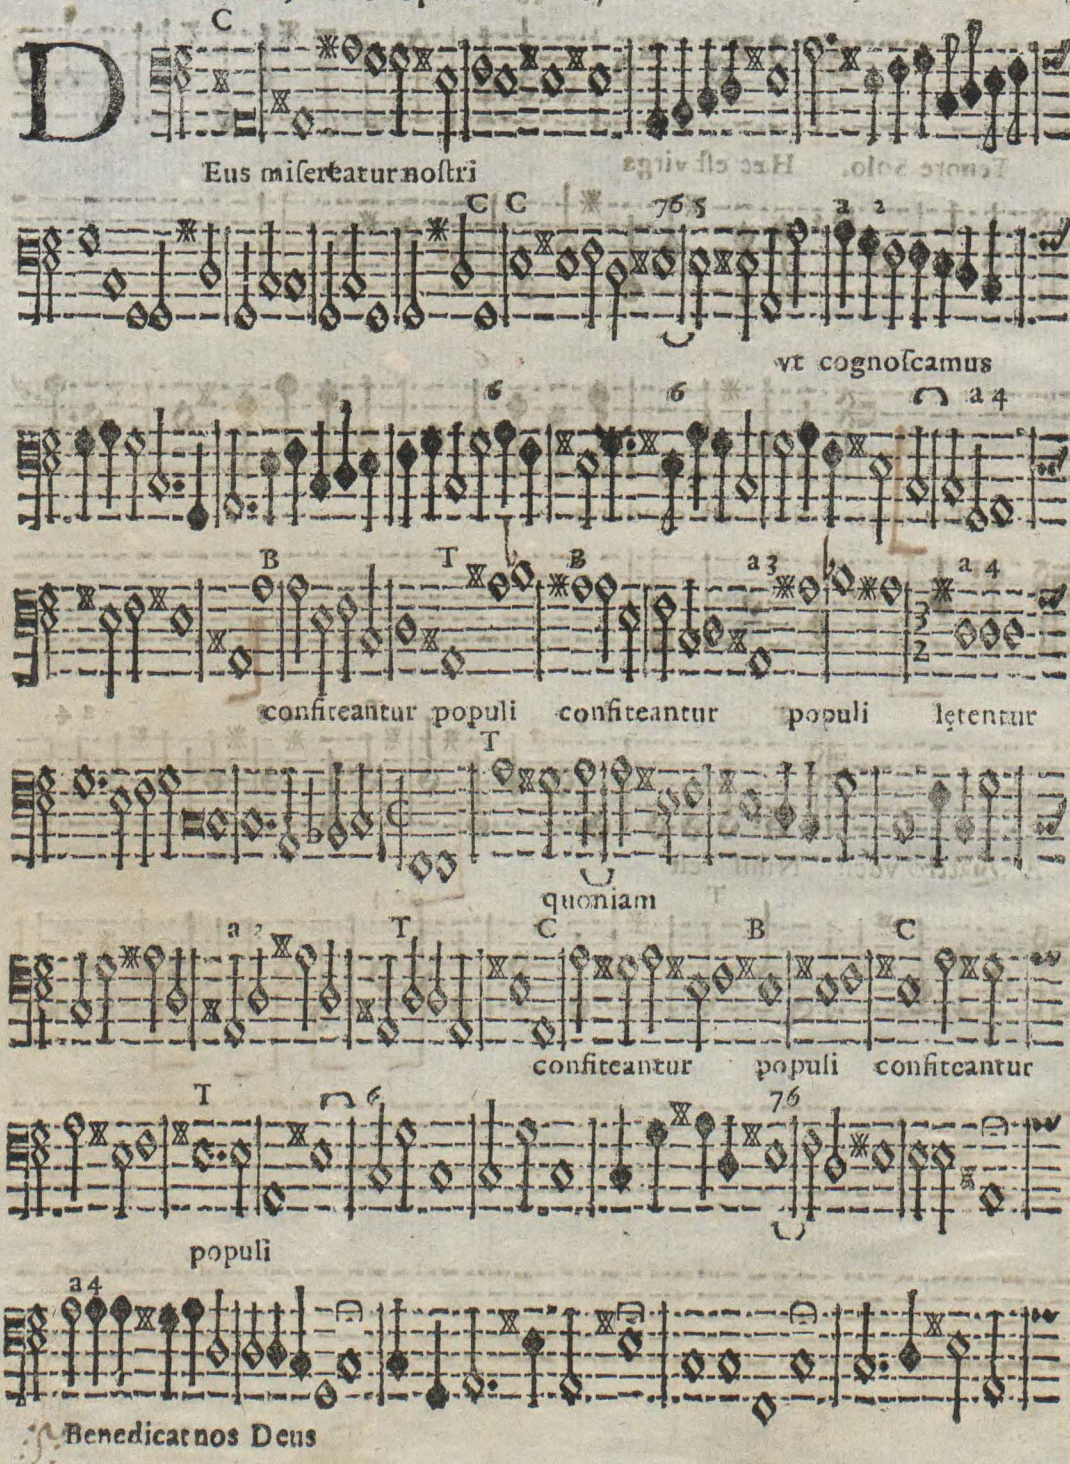 C
D
Eus misereatur nostri
C C 76 5 a 2
vt cognoscamus
6 6 a 4
B T B a 3 a 4
3
2
confiteantur populi confiteantur populi lętentur
T
quoniam
a 2 T C B C
confiteantur populi confiteantur
T 6 76
populi
a4
Benedicat nos Deus